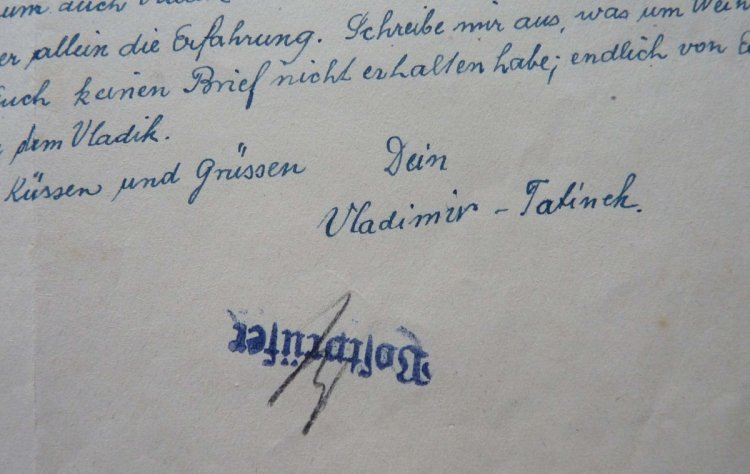 um auch
er allein die Erfahrung. Schreibe mir aus, was um
Euch keinen Brief nicht erhalten habe; endlich von
dem Vladik.
Küssen und Grüssen Dein
Vladimir - Tatinek.
Postprüfer